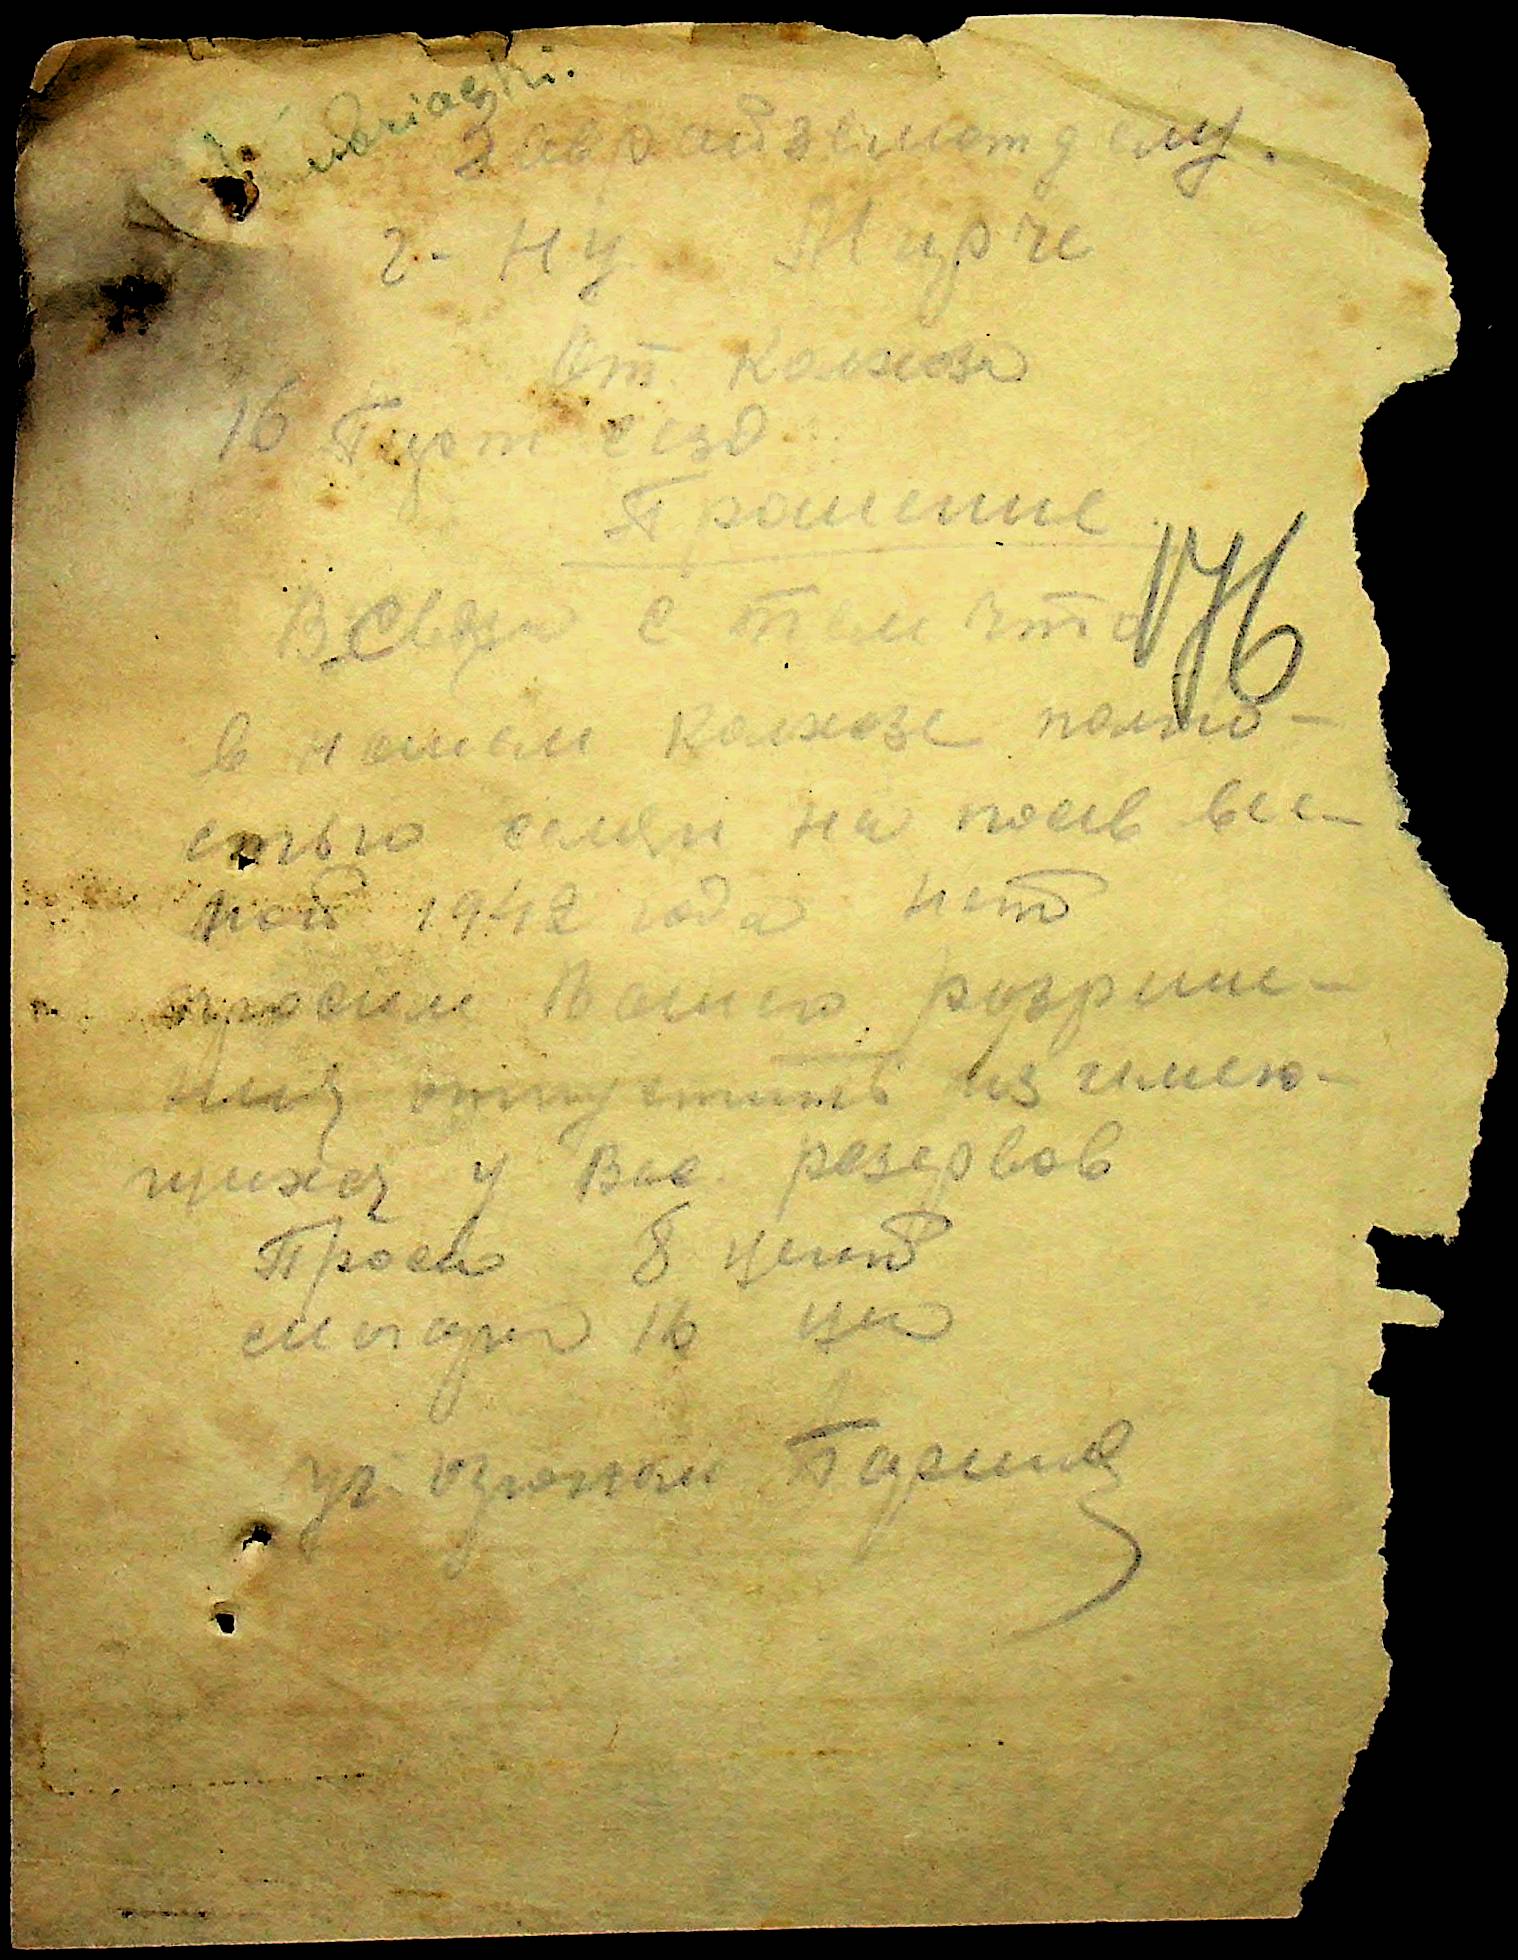 Заврайземотделу.
г-ну Мирче
От колхоза
16 Парт сезд
Прошение
176
В связи с тем что
в нашем колхозе полно-
стью семян на посев вес-
ной 1942 года нет
просим Вашего розреше-
ния отпустить из имею-
щихся у Вас резервов
Просо 8 цент
могара 16 цн
уч. агроном